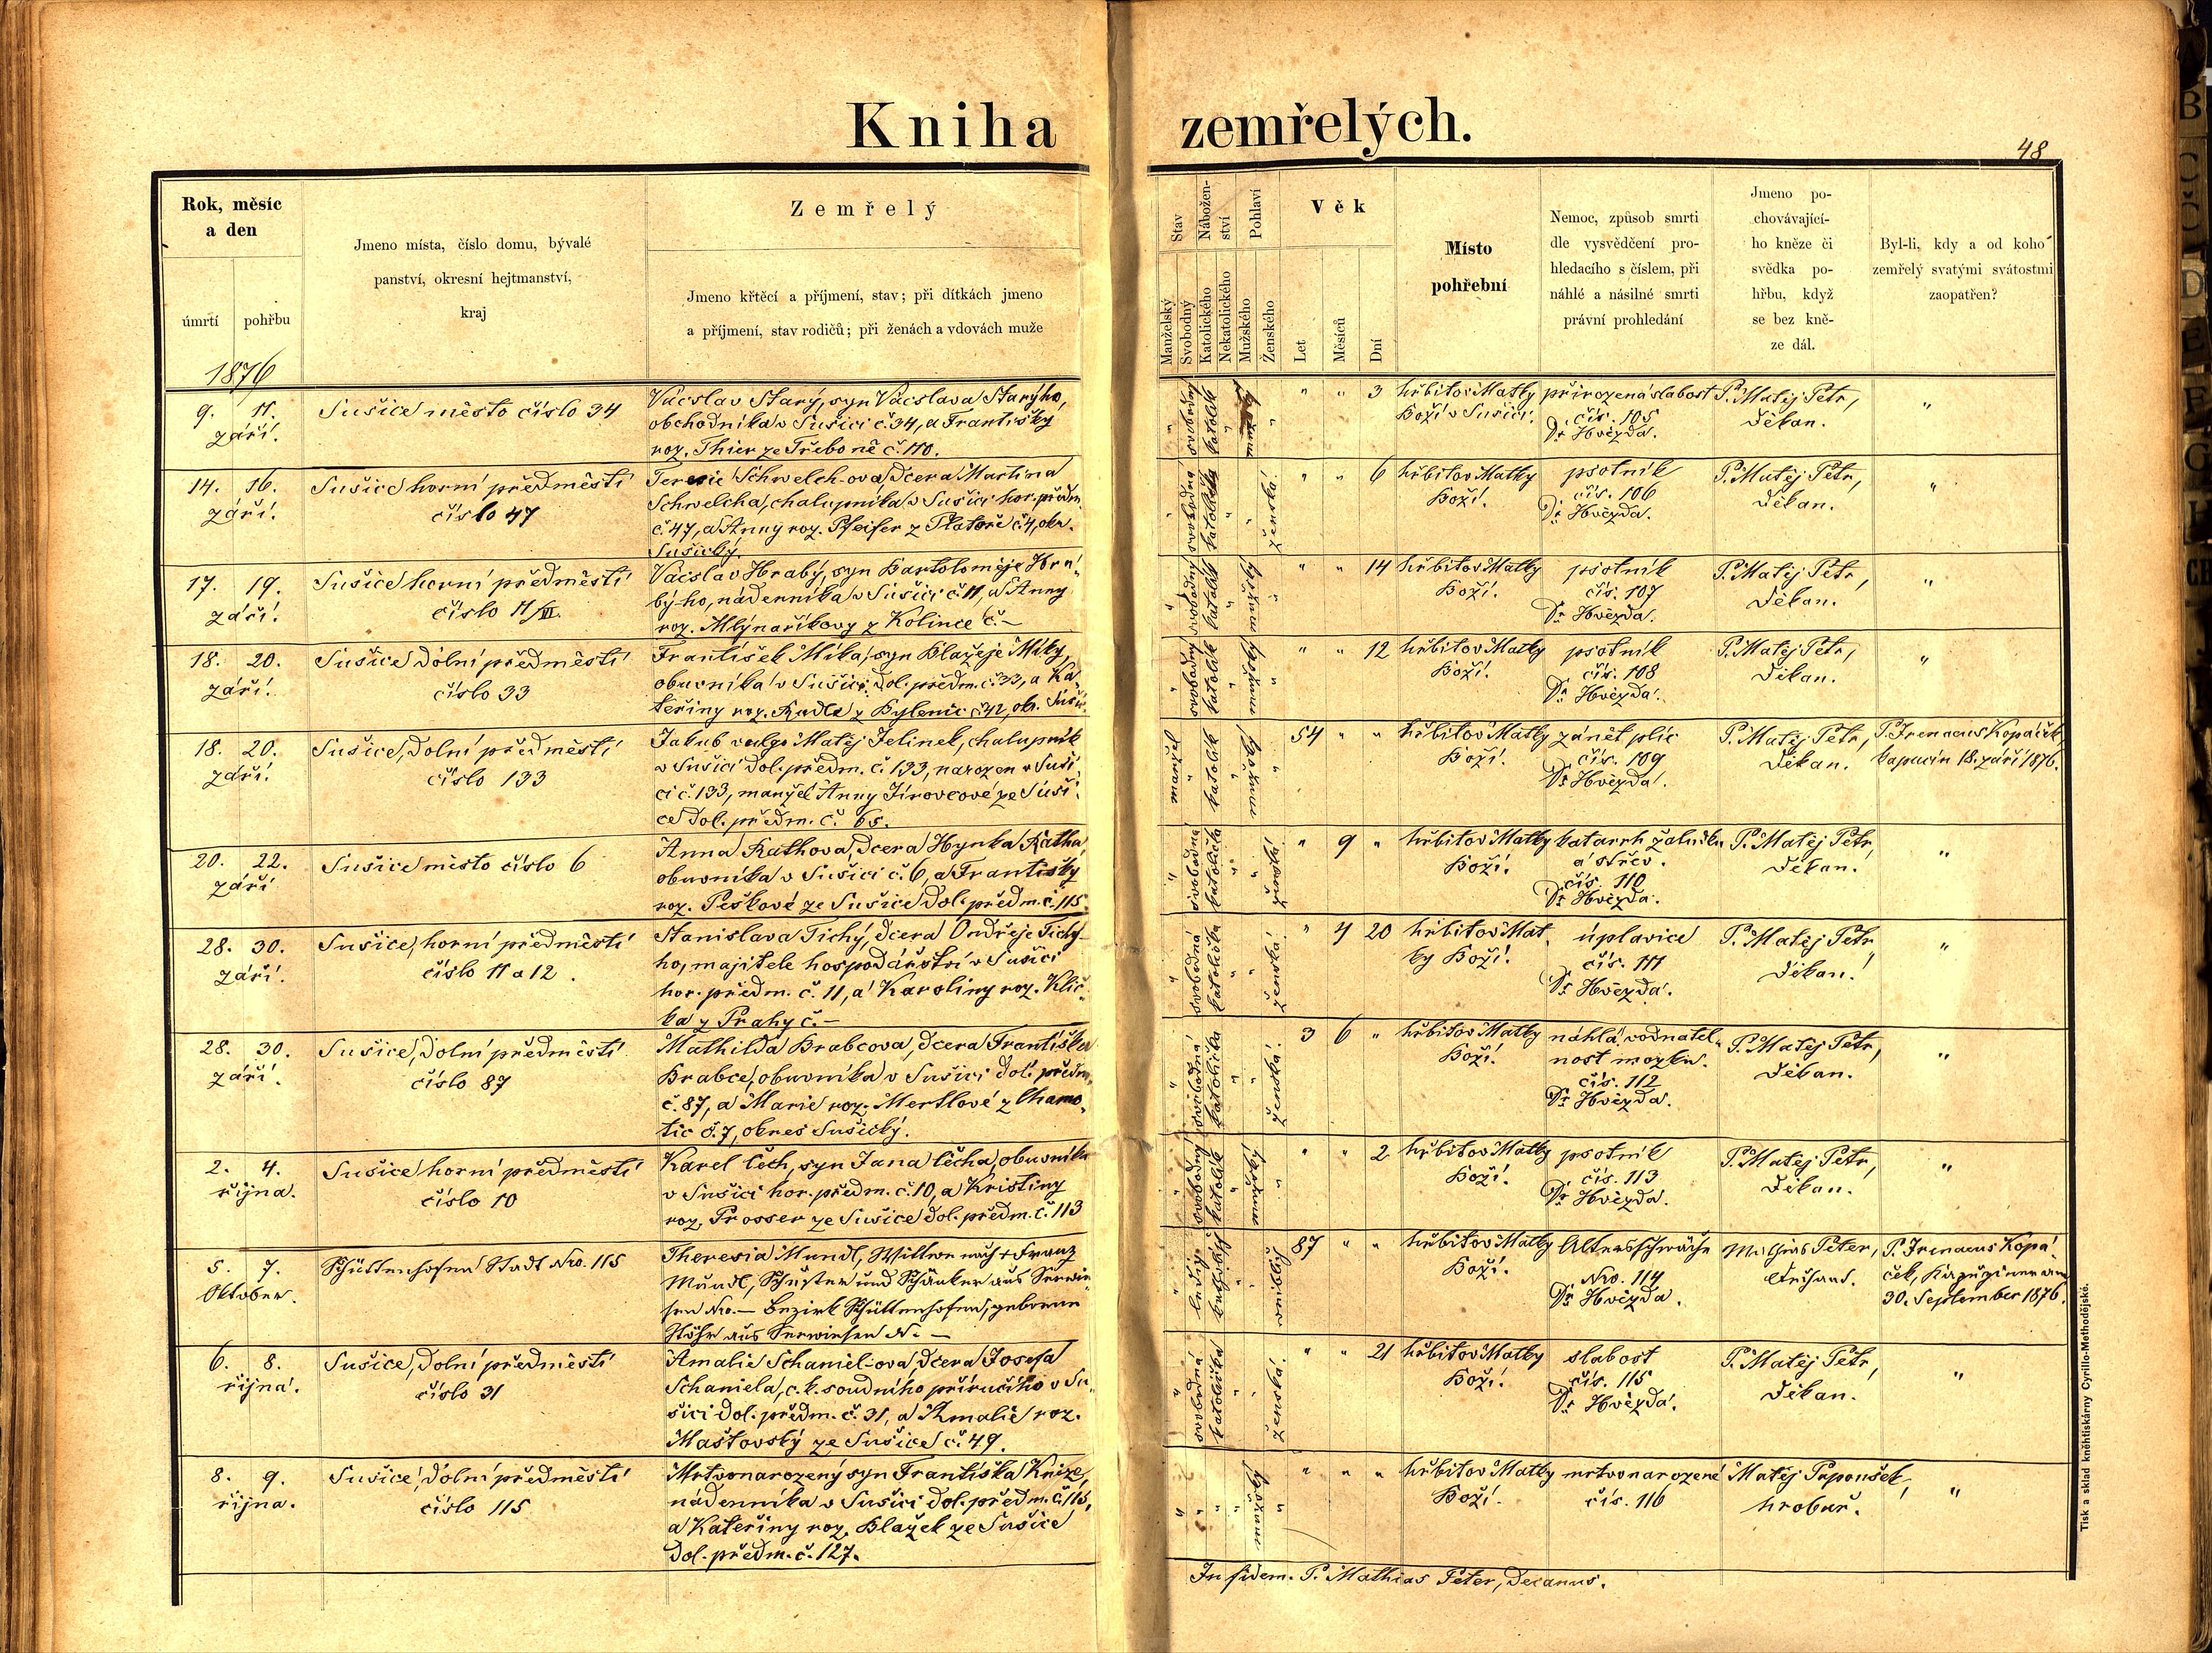 Kniha zemřelých.
48
Rok, měsíc
a den
úmrtí
pohřbu
1876
Jmeno místa, číslo domu, bývalé
panství, okresní hejtmanství,
kraj
Zemřelý
Jmeno křtěcí a příjmení, stav; při dítkách jmeno
a příjmení, stav rodičů; při ženách a vdovách muže
Stav
Nábožen-
ství
Pohlaví
Manželský
Svobodný
Katolického
Nekatolického
Mužského
Ženského
Věk
Let
Měsíců
Dní
Místo
pohřební
Nemoc, způsob smrti
dle vysvědčení pro-
hledacího s číslem, při
náhlé a násilné smrti
právní prohledání
Jmeno po-
chovávající-
ho kněze či
svědka po-
hřbu, když
se bez kně-
ze dál.
Byl-li, kdy a od koho
zemřelý svatými svátostmi
zaopatřen?
9. 11.
září.
Sušice město číslo 34
Vácslav Starý, syn Vácslava Starýho,
obchodníka v Sušici č. 34, a Františky
roz. Thier ze Třeboně č. 110.
" svobodný katolík " mužský "
" " 3
hřbitov Matky
Boží v Sušici.
přirozená slabost
čís. 105
Dr. Hvězda.
P. Matěj Petr,
děkan.
"
14. 16.
září.
Sušice horní předměstí
číslo 47
Terezie Schwelch-ova, dcera Martina
Schwelcha, chalupníka v Sušici hor. předm.
č. 47, a Anny roz. Pfeifer z Platoře č. 4, okr.
Sušický.
" svobodná katolička " " ženská.
" " 6
hřbitov Matky
Boží.
psotník
čís. 106
Dr. Hvězda.
P. Matěj Petr,
děkan.
"
17. 19.
září.
Sušice horní předměstí
číslo 11/III.
Vácslav Hrabý, syn Bartoloměje Hra-
býho, nádenníka v Sušici č. 11, a Anny
roz. Mlýnaříkovy z Kolince č. –
" svobodný katolík " mužský "
" " 14
hřbitov Matky
Boží.
psotník
čís. 107
Dr. Hvězda.
P. Matěj Petr,
děkan.
"
18. 20.
září.
Sušice dolní předměstí
číslo 33
František Míka, syn Blažeje Míky,
obuvníka v Sušici dol. předm. č. 33, a Ka-
teřiny roz. Radla z Bylenic č. 42, ok. Suš.
" svobodný katolík " mužský "
" " 12
hřbitov Matky
Boží.
psotník
čís. 108
Dr. Hvězda.
P. Matěj Petr,
děkan.
"
18. 20.
září.
Sušice, dolní předměstí
číslo 133
Jakub vulgo Matěj Jelinek, chalupník
v Sušici dol. předm. č. 133, narozen v Suši-
ci č. 133, manžel Anny Jírovcové ze Suši-
ce dol. předm. č. 65.
manžel " katolík " mužský "
54 " "
hřbitov Matky
Boží.
zánět plic
čís. 109
Dr. Hvězda.
P. Matěj Petr,
děkan.
P. Irenaeus Kopáček,
kapucín 18. září 1876.
20. 22.
září
Sušice město číslo 6
Anna Rathova, dcera Hynka Ratha,
obuvníka v Sušici č. 6, a Františky
roz. Peškové ze Sušice dol. předm. č. 115.
" svobodná katolička " " ženská.
" 9 "
hřbitov Matky
Boží.
katarrh žaludku
a střev.
čís. 110
Dr. Hvězda.
P. Matěj Petr,
děkan.
"
28. 30.
září.
Sušice, horní předměstí
číslo 11 a 12.
Stanislava Tichý, dcera Ondřeje Tichý-
ho, majitele hospodářství v Sušici
hor. předm. č. 11, a Karoliny roz. Klič-
ka z Prahy č. –
" svobodná katolička " " ženská.
" 4 20
hřbitov Mat-
ky Boží.
úplavice
čís. 111
Dr. Hvězda.
P. Matěj Petr,
děkan.
"
28. 30.
září.
Sušice, dolní předměstí
číslo 87
Mathilda Brabcova, dcera Františka
Brabce, obuvníka v Sušici dol. předm.
č. 87, a Marie roz. Mertlové z Chamo-
tic č. 7, okres Sušický.
" svobodná katolička " " ženská.
3 6 "
hřbitov Matky
Boží.
náhlá vodnatel-
nost mozku.
čís. 112
Dr. Hvězda.
P. Matěj Petr,
děkan.
"
2. 4.
října.
Sušice horní předměstí
číslo 10
Karel Čech, syn Jana Čecha, obuvníka
v Sušici hor. předm. č. 10, a Kristiny
roz. Prosser ze Sušice dol. předm. č. 113
" svobodný katolík " mužský "
" " 2
hřbitov Matky
Boží.
psotník
čís. 113
Dr. Hvězda.
P. Matěj Petr,
děkan.
"
5. 7.
Oktober.
Schüttenhofen Stadt Nro. 115
Theresia Mundl, Wittwe nach + Franz
Mundl, Schuster und Schänker aus
Nro. – Bezirk Schüttenhofen, geborene
aus Nr. –
" ledig katholisch " " weiblich
87 " "
hřbitov Matky
Boží.
Altersschwäche
Nro. 114
Dr. Hvězda.
Mathias Peter,
Dechant.
P. Irenaeus Kopá-
ček, Kapuziner am
30. September 1876.
6. 8.
října.
Sušice, dolní předměstí
číslo 31
Amalie Schaniel-ova, dcera Josefa
Schaniela, c. k. soudního příručího v Su-
šici dol. předm. č. 31, a Amalie roz.
Maštovský ze Sušice č. 49.
" svobodná katolička " " ženská.
" " 21
hřbitov Matky
Boží.
slabost
čís. 115
Dr. Hvězda.
P. Matěj Petr,
děkan.
"
8. 9.
října.
Sušice, dolní předměstí
číslo 115
Mrtvonarozený syn Františka Knize,
nádenníka v Sušici dol. předm. č. 115,
a Kateřiny roz. Blažek ze Sušice
dol. předm. č. 127.
" " " " mužský "
" " "
hřbitov Matky
Boží.
mrtvonarozené
čís. 116
Matěj Papoušek,
hrobař.
"
In fidem. P. Mathias Peter, decanus.
Tisk a sklad kněhtiskárny Cyrillo-Methodějské.